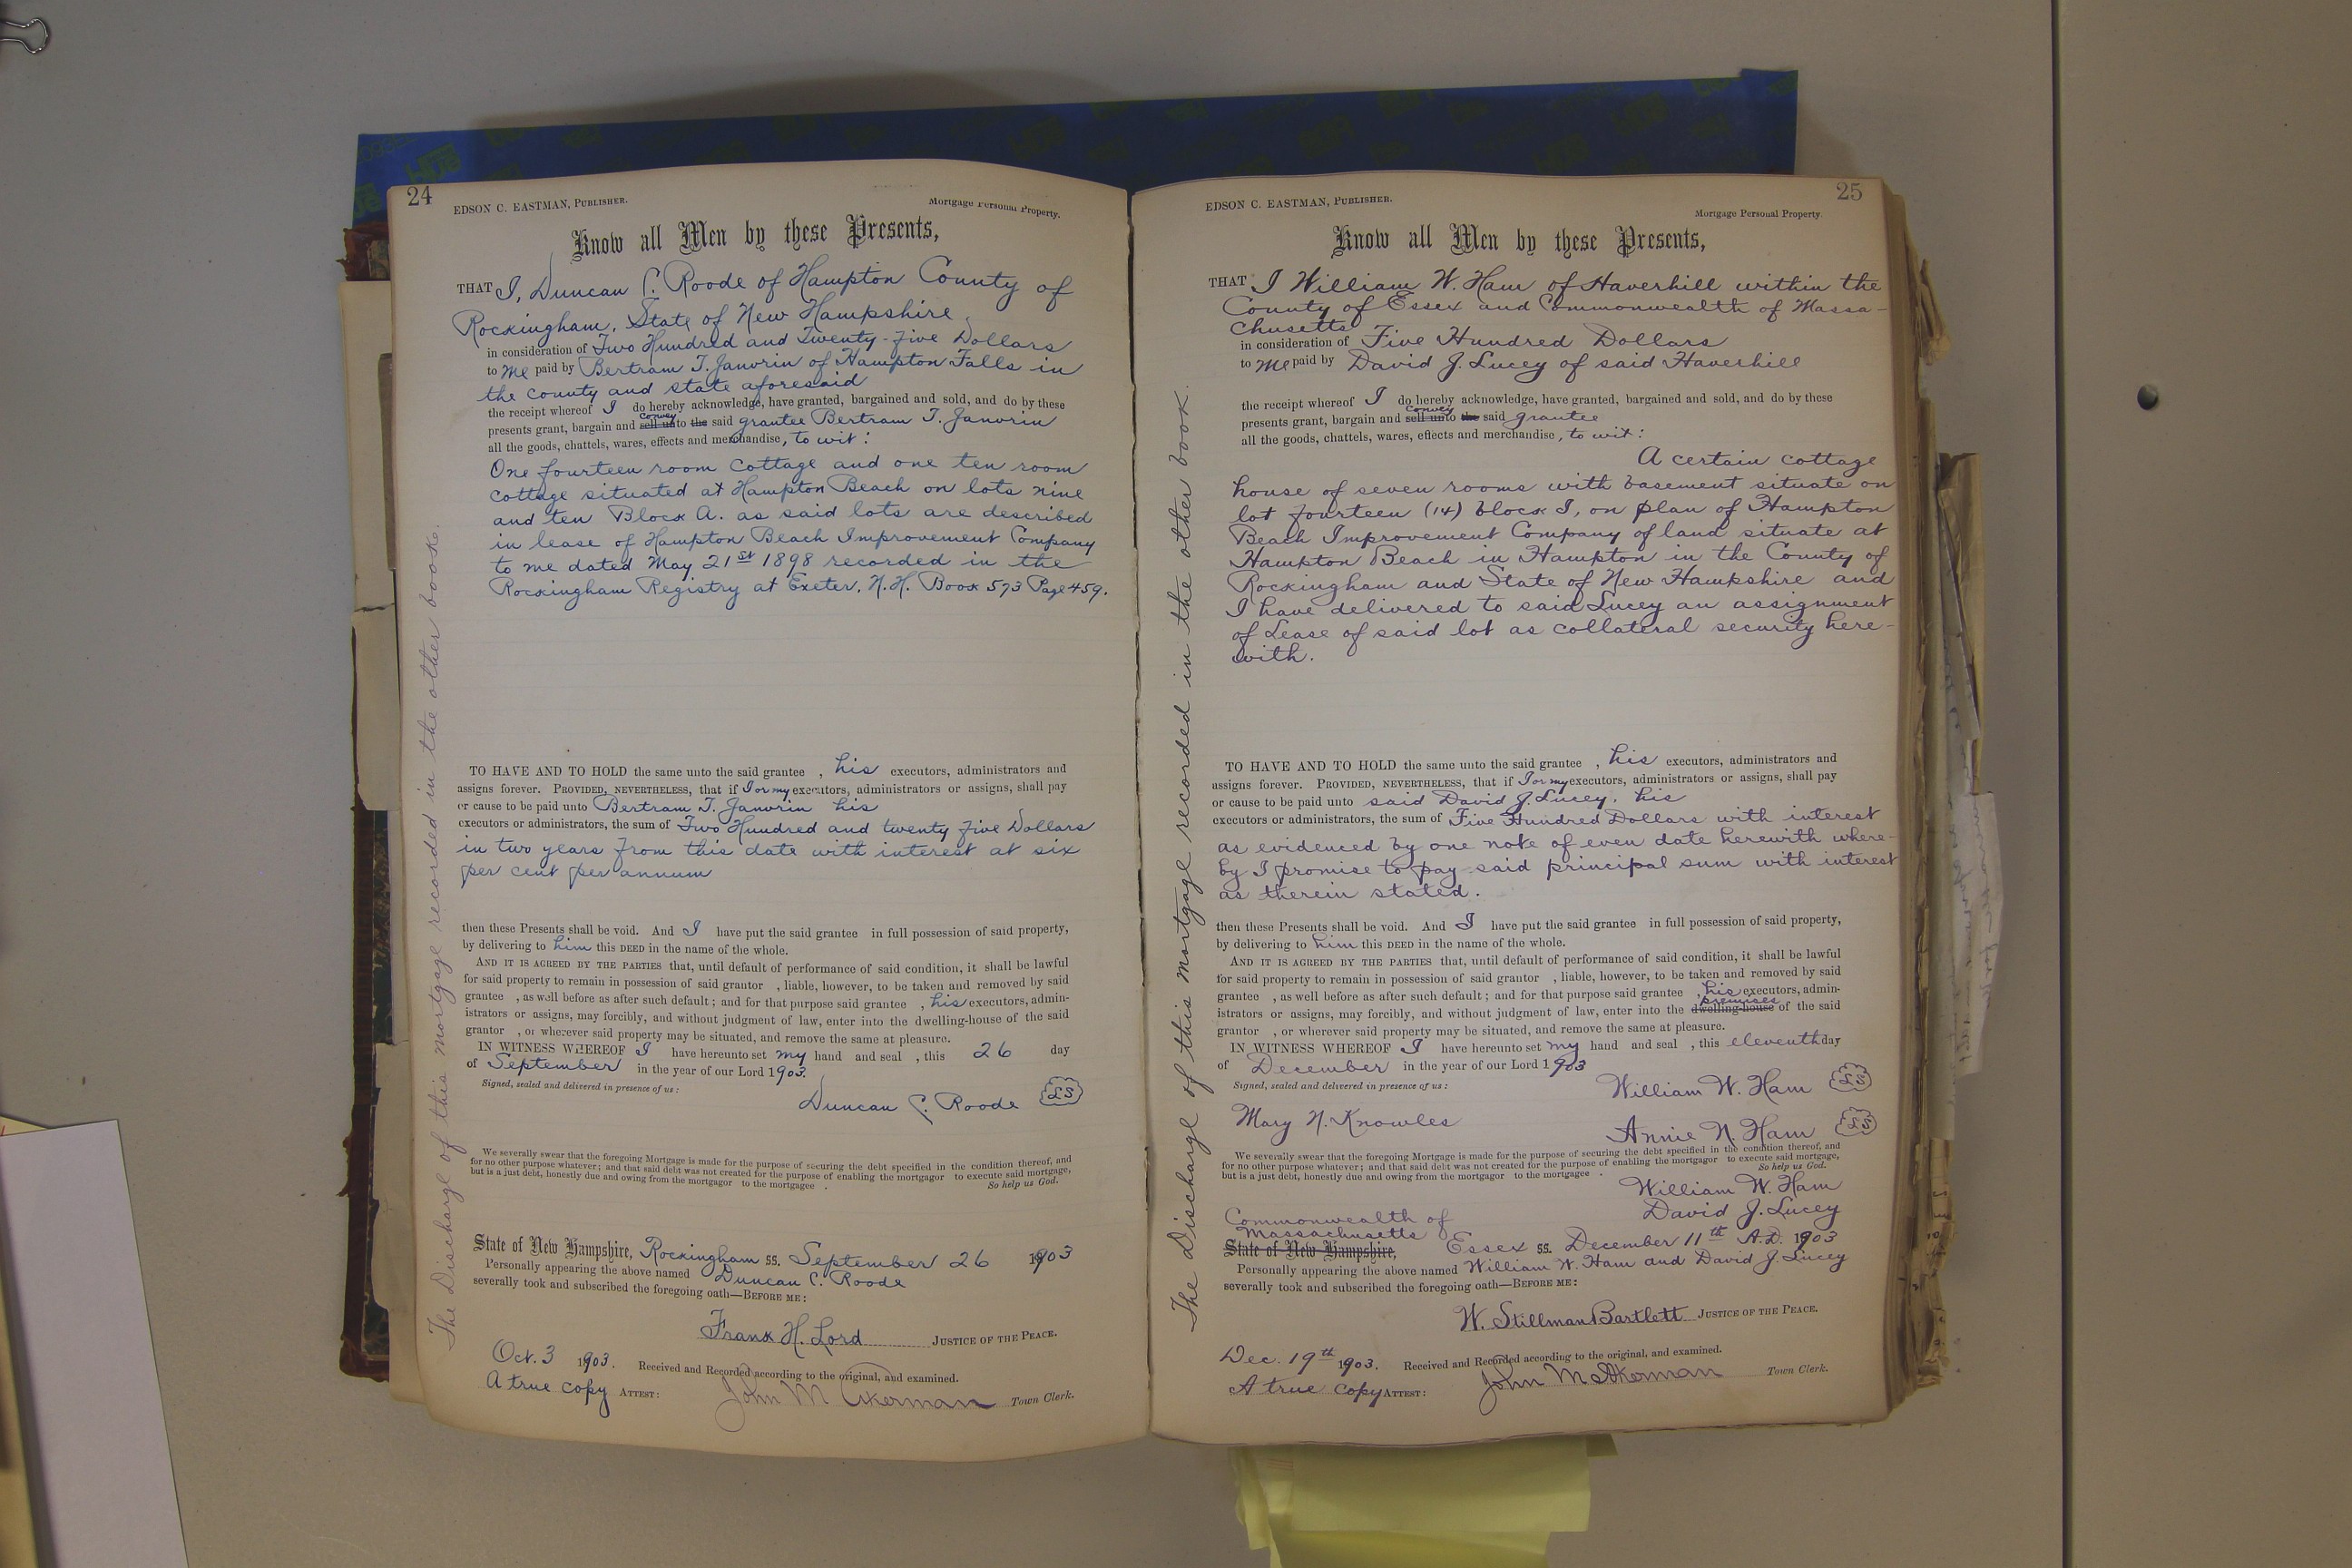 24
EDSON C. EASTMAN, PUBLISHER.
Mortgage Personal Property.
Know all Men by these Presents,
THAT I, Duncan C. Roode of Hampton County of
Rockingham, State of New Hampshire
in consideration of Two Hundred and Twenty-five Dollars
to me paid by Bertram T. Janvrin of Hampton Falls in
the county and state aforesaid
the receipt whereof I do hereby acknowledge, have granted, bargained and sold, and do by these
convey
presents grant, bargain and sell unto the said grantee Bertram T. Janvrin
all the goods, chattels, wares, effects and merchandise, to wit:
One fourteen room cottage and one ten room
cottage situated at Hampton Beach on lots nine
and ten Block A. as said lots are described
in lease of Hampton Beach Improvement Company
to me dated May 21st 1898 recorded in the
Rockingham Registry at Exeter, N.H. Book 573 Page 459.
TO HAVE AND TO HOLD the same unto the said grantee , his executors, administrators and
assigns forever. PROVIDED, NEVERTHELESS, that if I or my executors, administrators or assigns, shall pay
or cause to be paid unto Bertram T. Janvrin his
executors or administrators, the sum of Two Hundred and twenty five Dollars
in two years from this date with interest at six
per cent per annum
then these Presents shall be void. And I have put the said grantee in full possession of said property,
by delivering to him this DEED in the name of the whole.
AND IT IS AGREED BY THE PARTIES that, until default of performance of said condition, it shall be lawful
for said property to remain in possession of said grantor , liable, however, to be taken and removed by said
grantee , as well before as after such default; and for that purpose said grantee , his executors, admin-
istrators or assigns, may forcibly, and without judgment of law, enter into the dwelling-house of the said
grantor , or wherever said property may be situated, and remove the same at pleasure.
IN WITNESS WHEREOF I have hereunto set my hand and seal , this 26 day
of September in the year of our Lord 1903.
Signed, sealed and delivered in presence of us:
Duncan C. Roode LS
We severally swear that the foregoing Mortgage is made for the purpose of securing the debt specified in the condition thereof, and
for no other purpose whatever; and that said debt was not created for the purpose of enabling the mortgagor to execute said mortgage,
but is a just debt, honestly due and owing from the mortgagor to the mortgagee . So help us God.
State of New Hampshire, Rockingham ss. September 26 1903
Personally appearing the above named Duncan C. Roode
severally took and subscribed the foregoing oath—BEFORE ME:
Frank H. Lord JUSTICE OF THE PEACE.
Oct. 3 1903. Received and Recorded according to the original, and examined.
A true copy ATTEST: John M Akerman Town Clerk.
The Discharge of this mortgage recorded in the other booke.
25
EDSON C. EASTMAN, PUBLISHER.
Mortgage Personal Property
Know all Men by these Presents,
THAT I William W. Ham of Haverhill within the
County of Essex and Commonwealth of Massa-
chusetts
in consideration of Five Hundred Dollars
to me paid by David J. Lucey of said Haverhill
the receipt whereof I do hereby acknowledge, have granted, bargained and sold, and do by these
convey
presents grant, bargain and sell unto the said grantee
all the goods, chattels, wares, effects and merchandise, to wit:
A certain cottage
house of seven rooms with basement situate on
lot fourteen (14) block I, on plan of Hampton
Beach Improvement Company of land situate at
Hampton Beach in Hampton in the County of
Rockingham and State of New Hampshire and
I have delivered to said Lucey an assignment
of Lease of said lot as collateral security here-
with.
TO HAVE AND TO HOLD the same unto the said grantee , his executors, administrators and
assigns forever. PROVIDED, NEVERTHELESS, that if I or my executors, administrators or assigns, shall pay
or cause to be paid unto said David J. Lucey, his
executors or administrators, the sum of Five Hundred Dollars with interest
as evidenced by one note of even date herewith where-
by I promise to pay said principal sum with interest
as therein stated.
then these Presents shall be void. And I have put the said grantee in full possession of said property,
by delivering to him this DEED in the name of the whole.
AND IT IS AGREED BY THE PARTIES that, until default of performance of said condition, it shall be lawful
for said property to remain in possession of said grantor , liable, however, to be taken and removed by said
grantee , as well before as after such default; and for that purpose said grantee , his executors, admin-
premises
istrators or assigns, may forcibly, and without judgment of law, enter into the dwelling-house of the said
grantor , or wherever said property may be situated, and remove the same at pleasure.
IN WITNESS WHEREOF I have hereunto set my hand and seal , this eleventh day
of December in the year of our Lord 1903
Signed, sealed and delivered in presence of us:
William W. Ham LS
Mary N. Knowles
Annie N. Ham LS
We severally swear that the foregoing Mortgage is made for the purpose of securing the debt specified in the condition thereof, and
for no other purpose whatever; and that said debt was not created for the purpose of enabling the mortgagor to execute said mortgage,
but is a just debt, honestly due and owing from the mortgagor to the mortgagee . So help us God.
William W. Ham
David J. Lucey
Commonwealth of
Massachusetts
State of New Hampshire, Essex ss. December 11th A.D. 1903
Personally appearing the above named William W. Ham and David J. Lucey
severally took and subscribed the foregoing oath—BEFORE ME:
W. Stillman Bartlett JUSTICE OF THE PEACE.
Dec. 19th 1903. Received and Recorded according to the original, and examined.
A true copy ATTEST: John M Akerman Town Clerk.
The Discharge of this mortgage recorded in the other book.